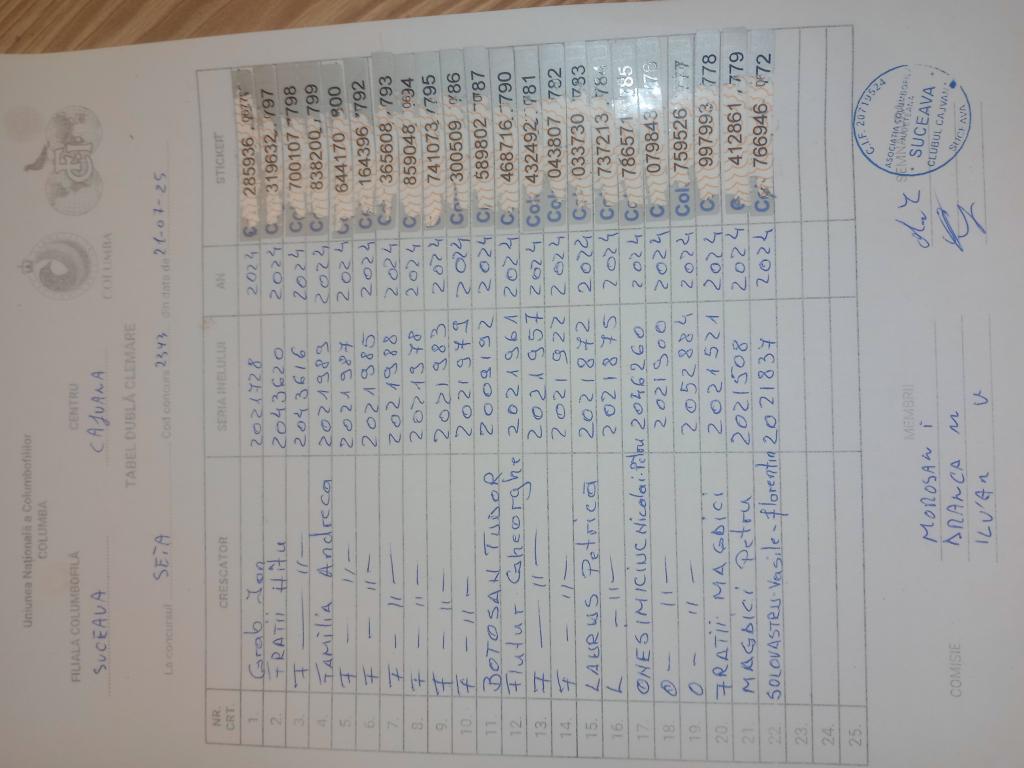 Uniunea Națională a Columbofililor
COLUMBA
FILIALA COLUMBOFILĂ CENTRU
SUCEAVA CAJVANA COLUMBA
TABEL DUBLĂ CLEMARE
La concursul SETA Cod concurs 2373 din data de 21-07-25
NR. CRT. CRESCATOR SERIA INELULUI AN STICKER
1. Ion 2021728 2024 285936
2. FRATII Hîțu 2043620 2024 319632 .797
3. F — 11 — 2043616 2024 700107 .798
4. FAMILIA Andreea 2021989 2024 838200 .799
5. F - 11 — 2021987 2024 644170
6. F - 11 — 2021985 2024 164396 .792
7. F - 11 — 2021988 2024 365608 .793
8. F - 11 — 2021378 2024 859048
9. F - 11 — 2021983 2024 741073 .795
10. F - 11 — 2021979 2024 300509
11. BOTOSAN TUDOR 2009192 2024 589802
12. Flutur Gheorghe 2021961 2024 468716 .790
13. F — 11 — 2021957 2024 Col. 432492 .781
14. F - 11 — 2021922 2024 Col 043807 .782
15. LAURUS Petrică 2021872 2024 033730
16. L - 11 — 2021875 2024 737213
17. ONESIMICIUC Nicolai-Petru 2046260 2024
18. O - 11 — 2021900 2024 079843
19. O - 11 — 2052884 2024 Col. 759526
20. FRATII MAGBICI 2021521 2024 997993 .778
21 MAGBICI Petru 2021508 2024 412861 .779
22. SOLOVASTRU Vasile-florentin 2021837 2024 766946
23.
24.
25.
COMISIE MEMBRII
MOROSAN I
ARANCA M
ILVAN V
C.I.F. 20719524
ASOCIATIA COLUMBOFILA
SUCEAVA
CLUBUL CAJVANA